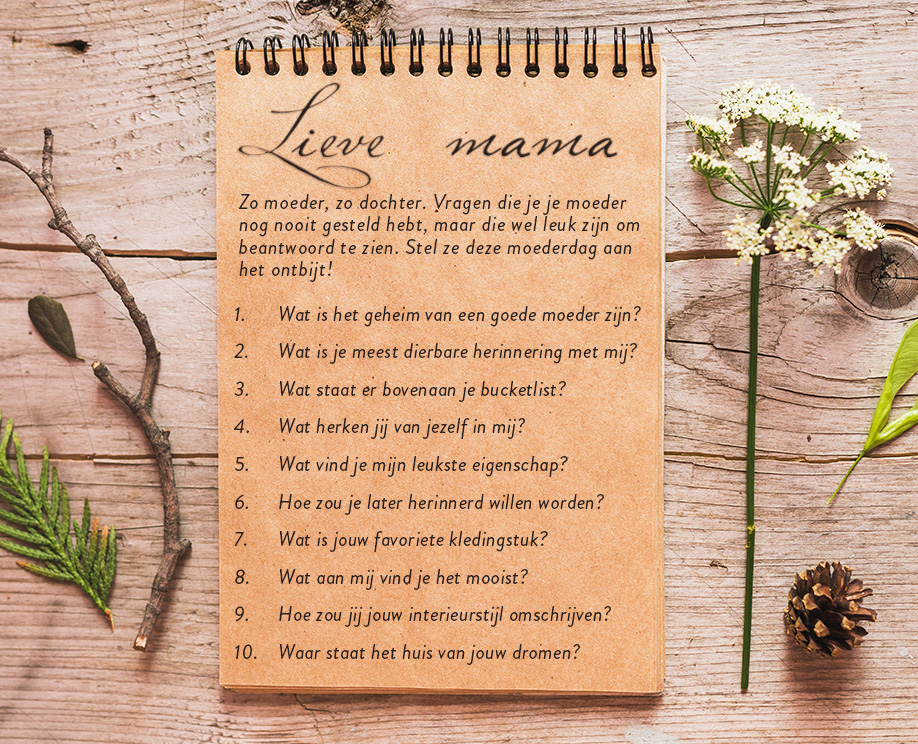 Lieve mama
Zo moeder, zo dochter. Vragen die je je moeder
nog nooit gesteld hebt, maar die wel leuk zijn om
beantwoord te zien. Stel ze deze moederdag aan
het ontbijt!
1. Wat is het geheim van een goede moeder zijn?
2. Wat is je meest dierbare herinnering met mij?
3. Wat staat er bovenaan je bucketlist?
4. Wat herken jij van jezelf in mij?
5. Wat vind je mijn leukste eigenschap?
6. Hoe zou je later herinnerd willen worden?
7. Wat is jouw favoriete kledingstuk?
8. Wat aan mij vind je het mooist?
9. Hoe zou jij jouw interieurstijl omschrijven?
10. Waar staat het huis van jouw dromen?